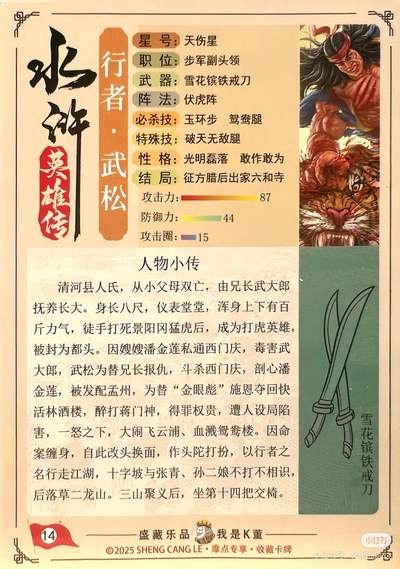 水浒
英雄传
行者·武松
星号:天伤星
职位:步军副头领
武器:雪花镔铁戒刀
阵法:伏虎阵
必杀技:玉环步 鸳鸯腿
特殊技:破天无敌腿
性格:光明磊落 敢作敢为
结局:征方腊后出家六和寺
攻击力: 87
防御力: 44
攻击圈: 15
人物小传
清河县人氏，从小父母双亡，由兄长武大郎
抚养长大。身长八尺，仪表堂堂，浑身上下有百
斤力气，徒手打死景阳冈猛虎后，成为打虎英雄，
被封为都头。因嫂嫂潘金莲私通西门庆，毒害武
大郎，武松为替兄长报仇，斗杀西门庆，剖心潘
金莲，被发配孟州，为替“金眼彪”施恩夺回快
活林酒楼，醉打蒋门神，得罪权贵，遭人设局陷
害，一怒之下，大闹飞云浦、血溅鸳鸯楼。因命
案缠身，自此改头换面，作头陀打扮，以行者之
名行走江湖，十字坡与张青、孙二娘不打不相识，
后落草二龙山。三山聚义后，坐第十四把交椅。
雪花镔铁戒刀
14
盛藏乐品 我是K董
©2025 SHENG CANG LE·摩点专享·收藏卡牌
小红书